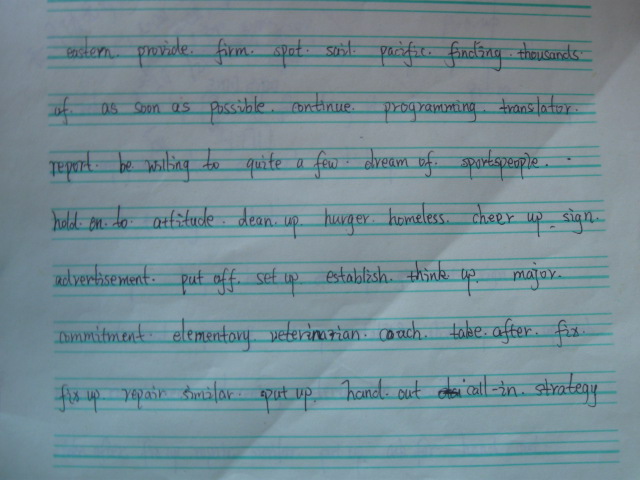 eastern. provide. firm. spot. sail. pacific. finding. thousands
of. as soon as possible. continue. programming. translator.
report. be willing to quite a few. dream of. sportspeople.
hold. on. to. attitude. clean. up. hunger. homeless. cheer up. sign.
advertisement. put off. set up. establish. think up. major.
commitment. elementary veterinarian. coach. take. after. fix.
fix up repair similar. put up. hand. out call-in. strategy